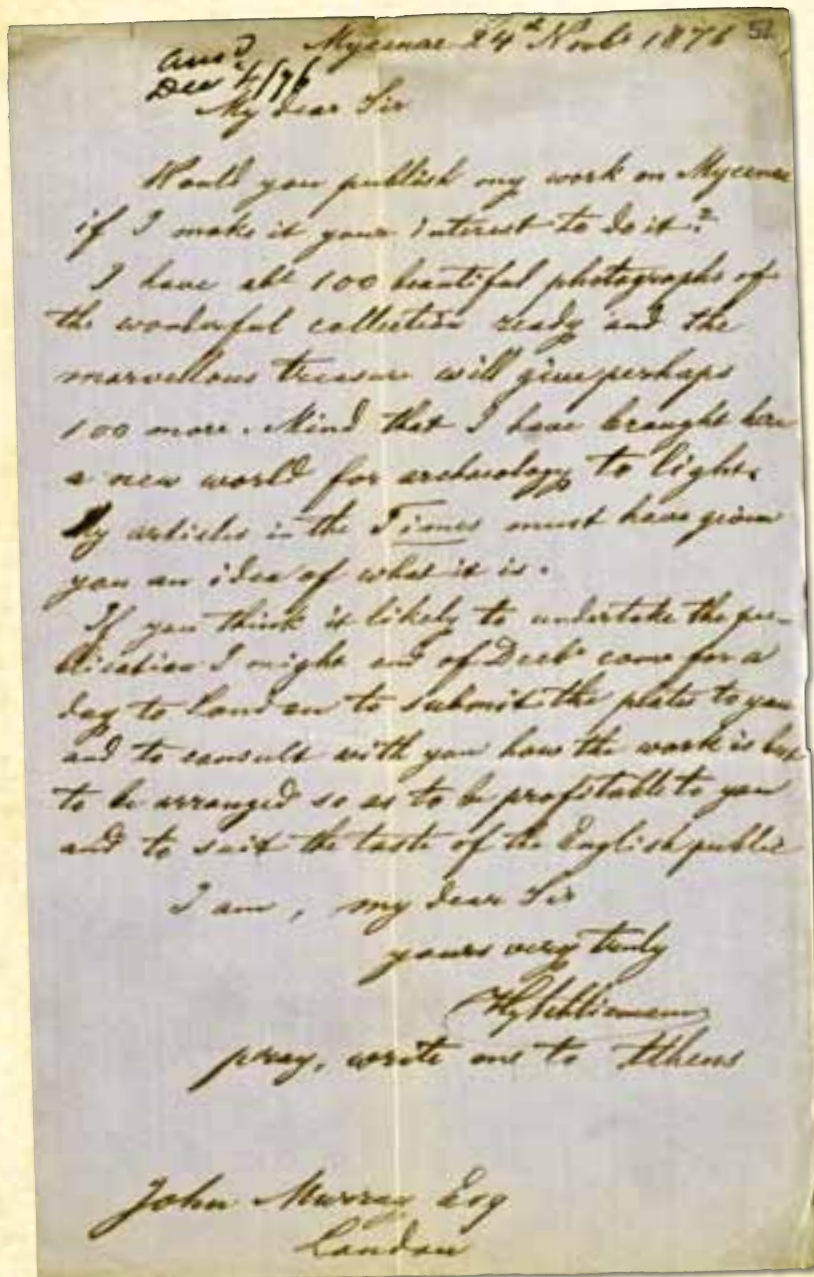 Mycenae 24th Novbr 1876 52
ansd
Dec 4/76
My dear Sir
Would you publish my work on Mycenae
if I make it your interest to do it?
I have abt 100 beautiful photographs of
the wonderful collection ready and the
marvellous treasure will give perhaps
100 more. Mind that I have brought here
a new world for archaeology to light.
My articles in the Times must have given
you an idea of what it is.
If you think it likely to undertake the pu-
blication I might end of Decbr come for a
day to London to submit the plates to you
and to consult with you how the work is best
to be arranged so as to be profitable to you
and to suit the taste of the English public
I am, my dear Sir
yours very truly
Hy Schliemann
pray, write me to Athens
John Murray Esq
London